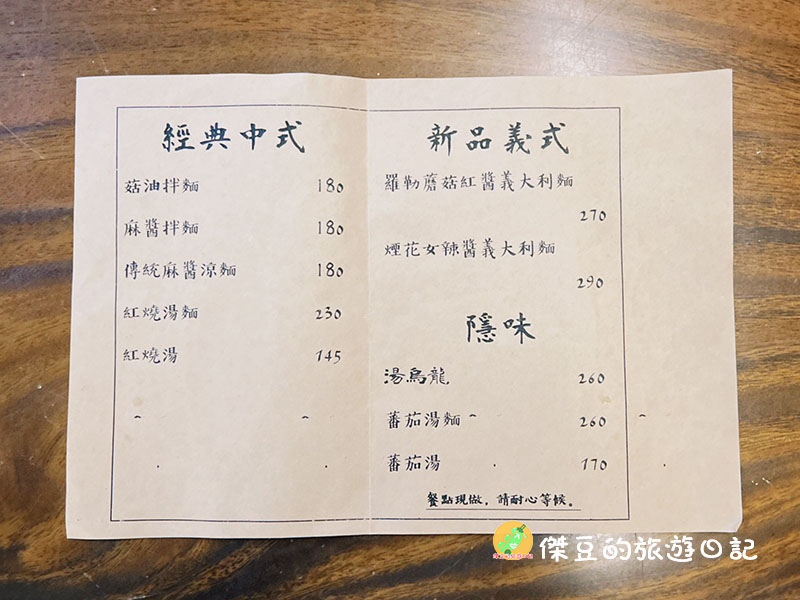 經典中式
菇油拌麵 180
麻醬拌麵 180
傳統麻醬涼麵 180
紅燒湯麵 230
紅燒湯 145
新品義式
羅勒蘑菇紅醬義大利麵
270
煙花女辣醬義大利麵
290
隱味
湯烏龍 260
蕃茄湯麵 260
蕃茄湯 170
餐點現做，請耐心等候。
傑豆的旅遊日記